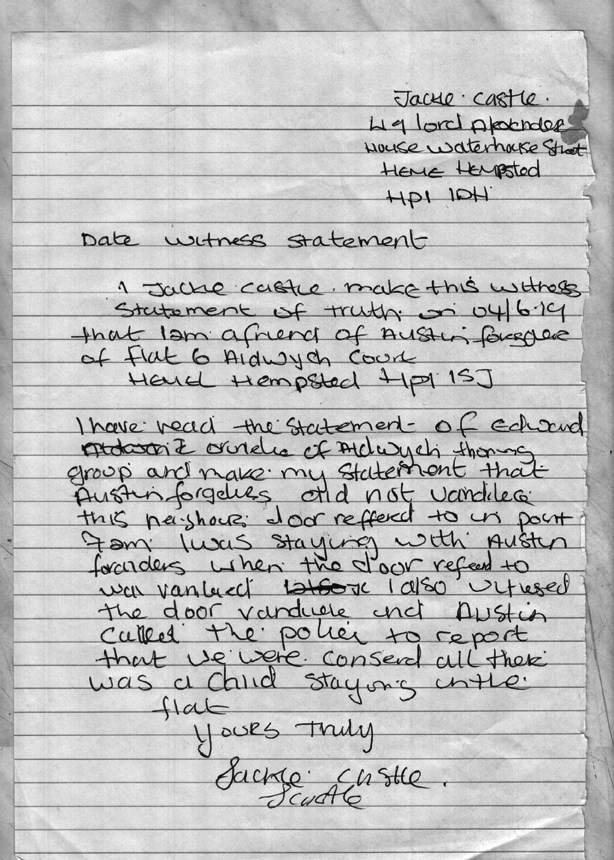 Jackie. castle.
49 lord
House waterhouse Street
HEME HEMPSTED
HP1 1DH
Date witness statement
I Jackie castle. make this witness
statement of truth. on 04/6.19
that I am a friend of Austin
of flat 6 Aldwych Court
HEMEL HEMPSTED HP1 1SJ
I have read the statement of Edward
of Aldwych
group and make my statement that
Austin did not
this door reffered to in point
7am I was staying with Austin
when the door refered to
was I also
the door and Austin
called the police to report
that we were. all there
was a child staying in the
flat
Yours Truly
Jackie. castle.
Jcastle